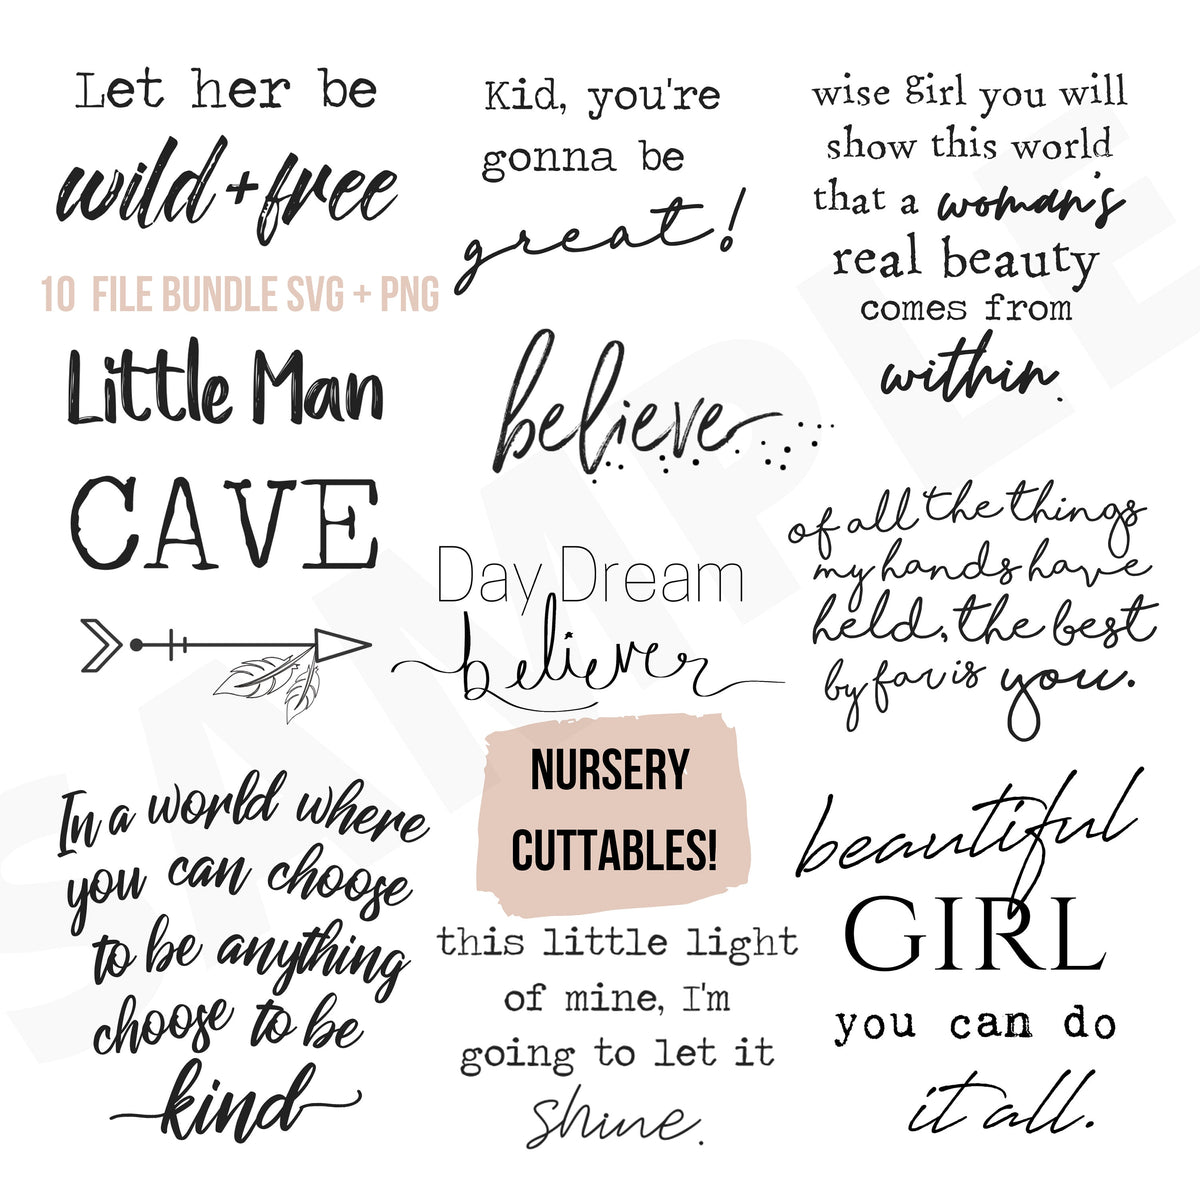 Let her be
wild + free
10 FILE BUNDLE SVG + PNG
Little Man
CAVE
In a world where
you can choose
to be anything
choose to be
kind
Kid, you're
gonna be
great!
believe
Day Dream
believer
NURSERY
CUTTABLES!
this little light
of mine, I'm
going to let it
shine.
wise girl you will
show this world
that a woman's
real beauty
comes from
within.
of all the things
my hands have
held, the best
by far is you.
beautiful
GIRL
you can do
it all.
SAMPLE